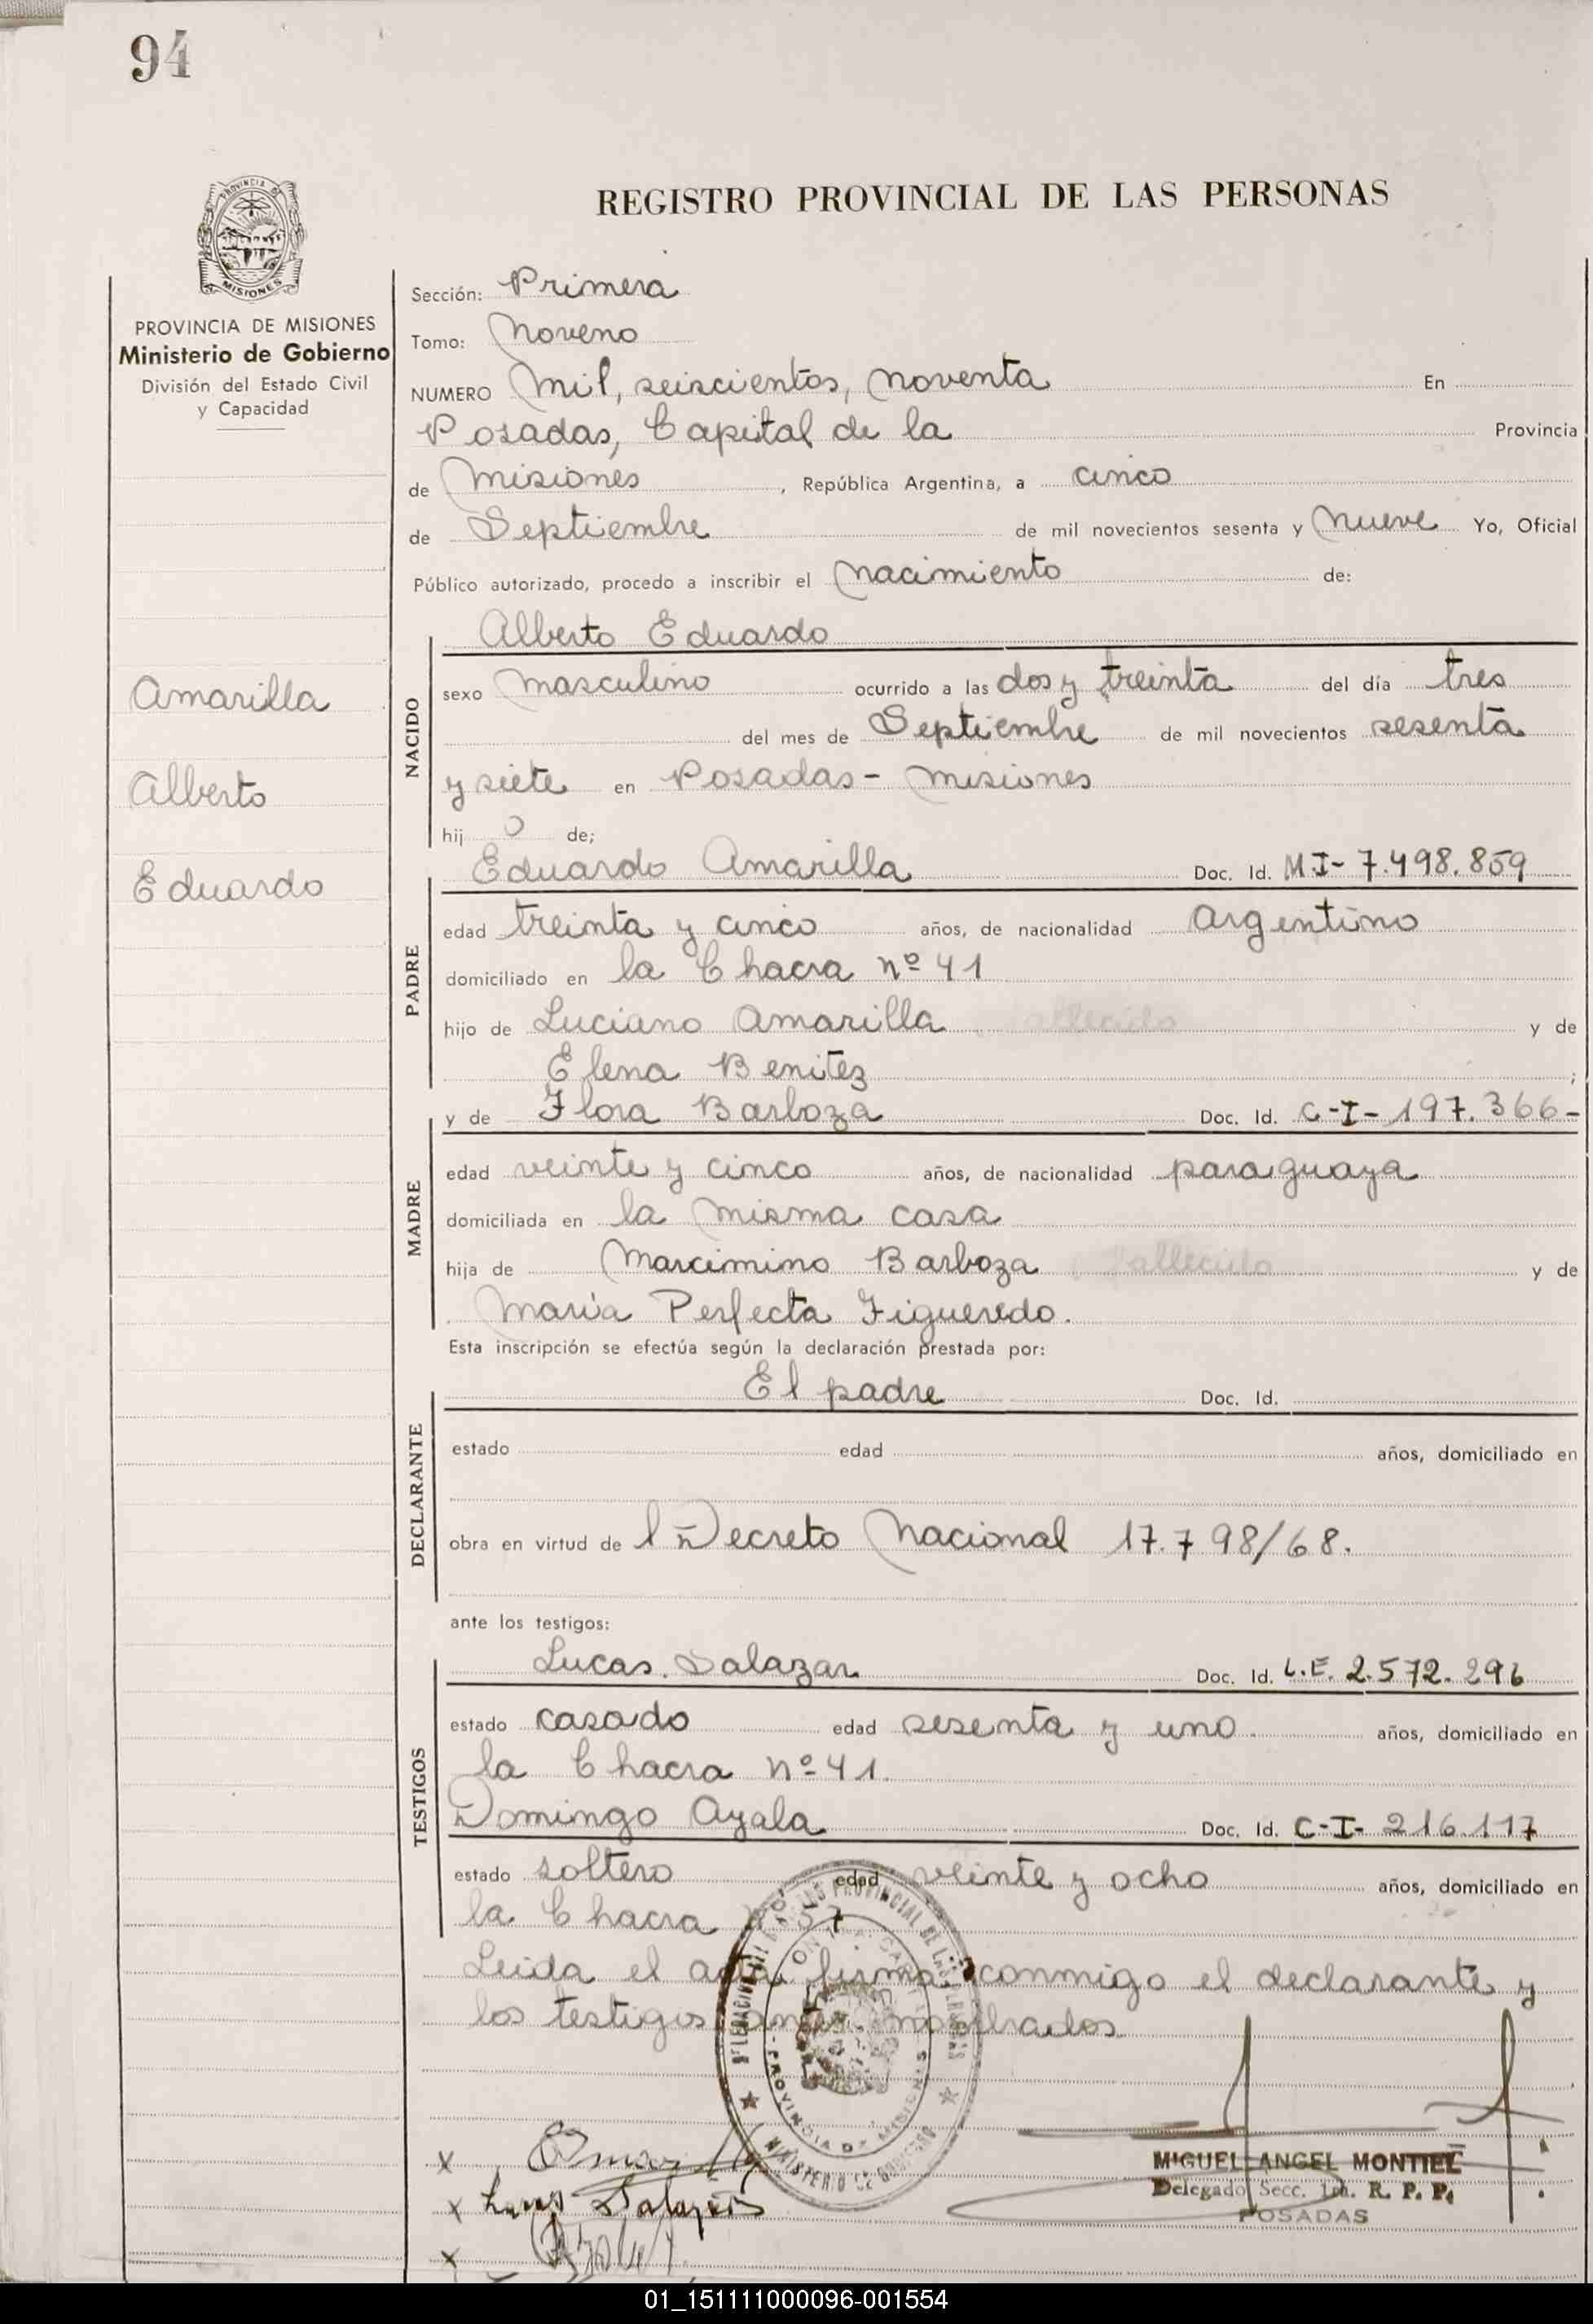 94
PROVINCIA DE
MISIONES
PROVINCIA DE MISIONES
Ministerio de Gobierno
División del Estado Civil
y Capacidad
Amarilla
Alberto
Eduardo
REGISTRO PROVINCIAL DE LAS PERSONAS
Sección: Primera
Tomo: Noveno
NUMERO Mil, seiscientos, noventa En
Posadas, Capital de la Provincia
de Misiones, República Argentina, a cinco
de Septiembre de mil novecientos sesenta y nueve Yo, Oficial
Público autorizado, procedo a inscribir el nacimiento de:
NACIDO
Alberto Eduardo
sexo masculino ocurrido a las dos y treinta del día tres
del mes de Septiembre de mil novecientos sesenta
y siete en Posadas - Misiones
hij o de;
PADRE
Eduardo Amarilla Doc. Id. M I - 7.498.859
edad treinta y cinco años, de nacionalidad argentino
domiciliado en la Chacra nº 41
hijo de Luciano Amarilla fallecido y de
Elena Benitez ;
MADRE
y de Flora Barboza Doc. Id. C - I - 197.366 -
edad veinte y cinco años, de nacionalidad paraguaya
domiciliada en la misma casa
hija de Marcimino Barboza fallecido y de
María Perfecta Figueredo.
Esta inscripción se efectúa según la declaración prestada por:
DECLARANTE
El padre Doc. Id.
estado edad años, domiciliado en
obra en virtud de l Decreto Nacional 17.798/68.
ante los testigos:
TESTIGOS
Lucas Salazar Doc. Id. L.E. 2.572.296
estado casado edad sesenta y uno años, domiciliado en
la Chacra nº 41.
Domingo Ayala Doc. Id. C - I - 216.117
estado soltero edad veinte y ocho años, domiciliado en
la Chacra nº 57
Leida el acta firma conmigo el declarante y
los testigos antes nombrados
PROVINCIAL DE LAS PERSONAS
PROVINCIA DE MISIONES
MINISTERIO DE GOBIERNO
x
x Lucas Salazar
x
MIGUEL ANGEL MONTIEL
Delegado Secc. 1ra. R. P. P.
POSADAS
01_151111000096-001554